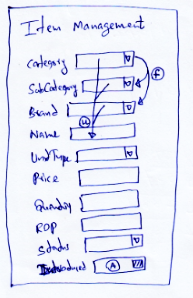 Item Management
Category
SubCategory
F
Brand
U
Name
UnitType
Price
Quantity
ROP
Status
Introduced A